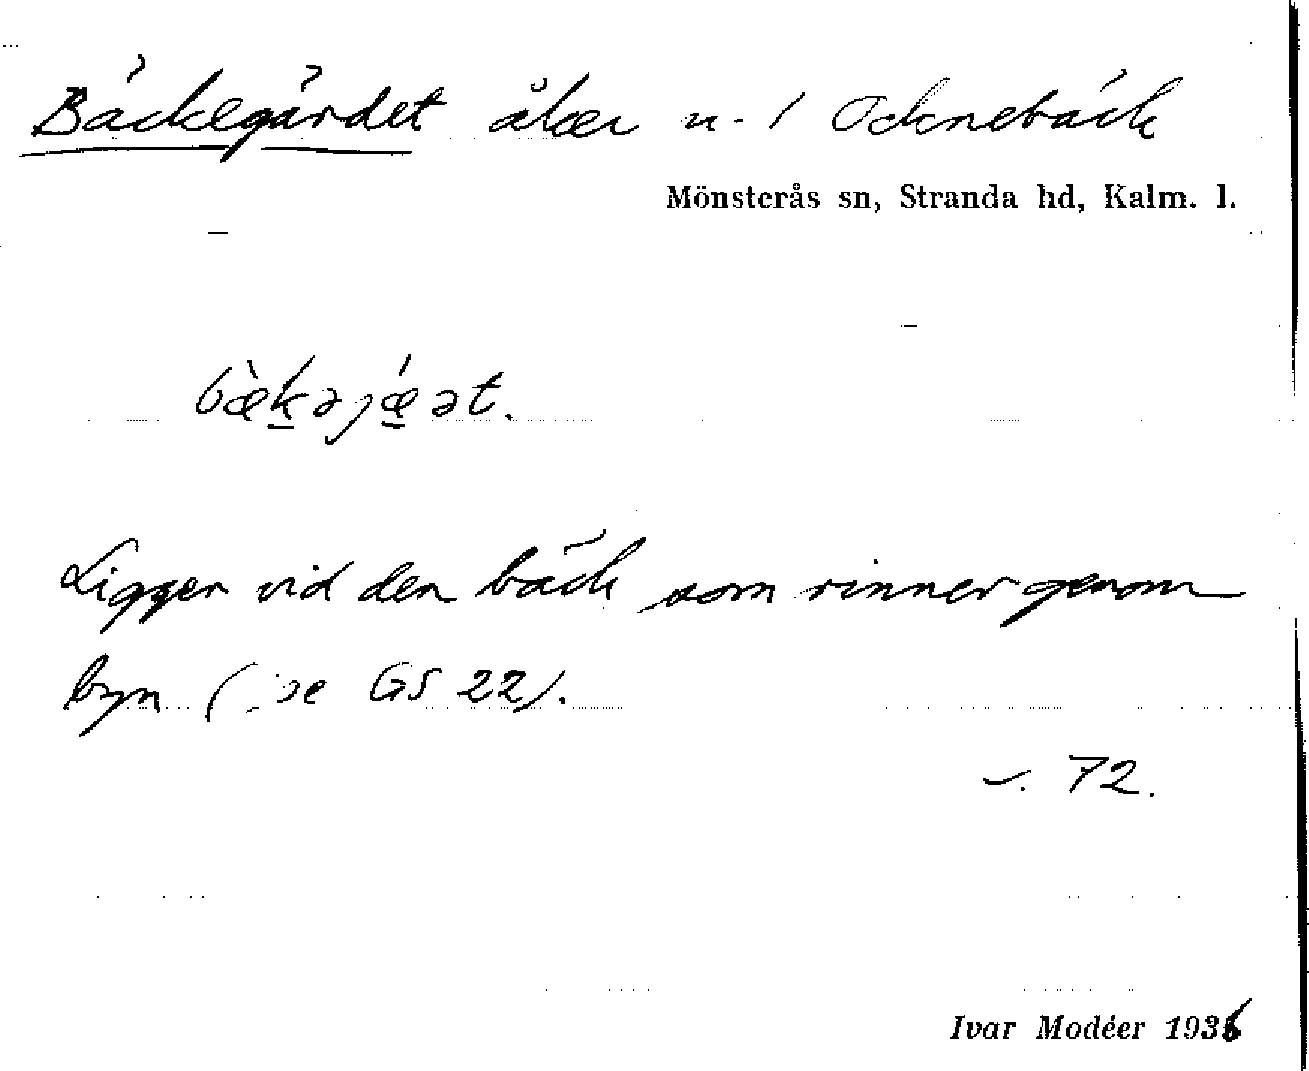 Bäckegärdet åker n. 1 Ocknebäck
Mönsterås sn, Stranda hd, Kalm. l.
bæ̀k̲əjǽ̲ət.
Ligger vid den bäck som rinner genom
byn (se GS 22).
72.
Ivar Modéer 1936